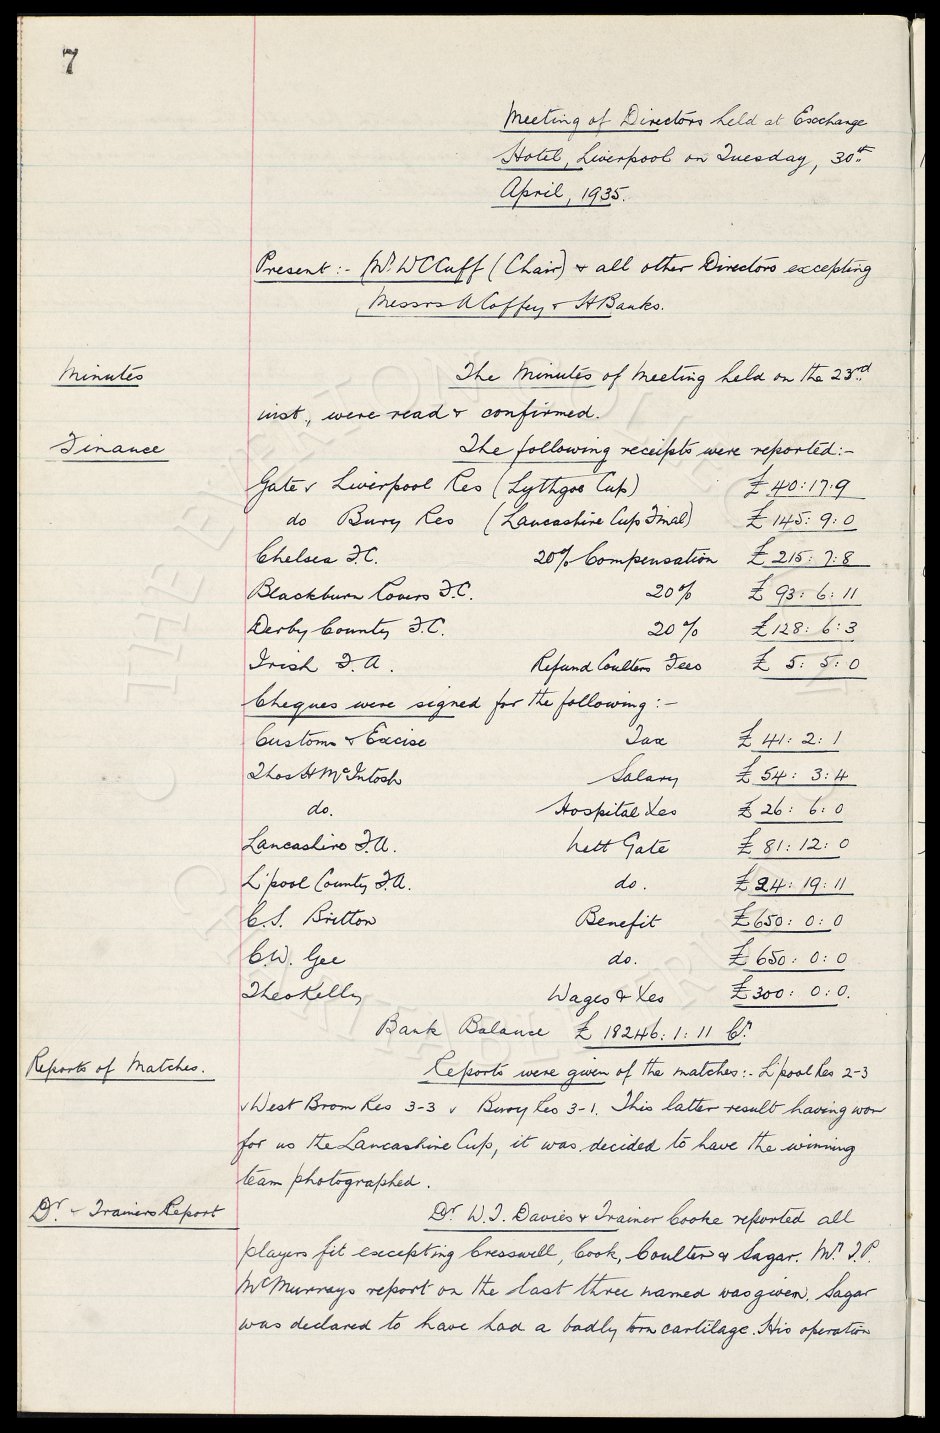 7
Meeting of Directors held at Exchange
Hotel, Liverpool on Tuesday, 30th
April, 1935.
Present :- Mr. W C Cuff (Chair) & all other Directors excepting
Messrs A Coffey & H Banks.
Minutes The Minutes of Meeting held on the 23rd
inst., were read & confirmed.
Finance The following receipts were reported:-
Gate v Liverpool Res (Lythgoe Cup) £ 40:17:9
do Bury Res (Lancashire Cup Final) £ 145: 9: 0
Chelsea F.C. 20% Compensation £ 215: 7: 8
Blackburn Rovers F.C. 20% £ 93: 6: 11
Derby County F.C. 20% £128: 6: 3
Irish F.A. Refund Coulters Fees £ 5: 5: 0
Cheques were signed for the following :-
Customs & Excise Tax £ 41: 2: 1
Thos H McIntosh Salary £ 54: 3: 4
do. Hospital &es £ 26: 6: 0
Lancashire F.A. Nett Gate £ 81: 12: 0
L'pool County F.A. do. £ 24: 19: 11
C.S. Britton Benefit £650: 0: 0
C.W. Gee do. £ 650: 0: 0
Theo Kelly Wages & &es £300: 0: 0.
Bank Balance £ 18246: 1: 11 Cr.
Reports of Matches. Reports were given of the matches:- L'pool Res 2-3
v West Brom Res 3-3 v Bury Res 3-1. This latter result having won
for us the Lancashire Cup, it was decided to have the winning
team photographed.
Dr. & Trainers Report Dr. W.J. Davies & Trainer Cooke reported all
players fit excepting Cresswell, Cook, Coulter & Sagar. Mr. T.P.
McMurrays report on the last three named was given. Sagar
was declared to have had a badly torn cartilage. His operation